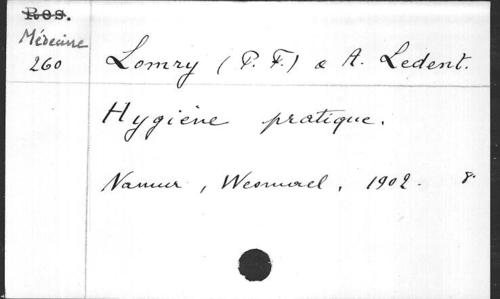 Res.
Médecine
260
Lomry (P. F.) & A. Ledent.
Hygiène pratique.
Namur, Wesmael, 1902. 8°